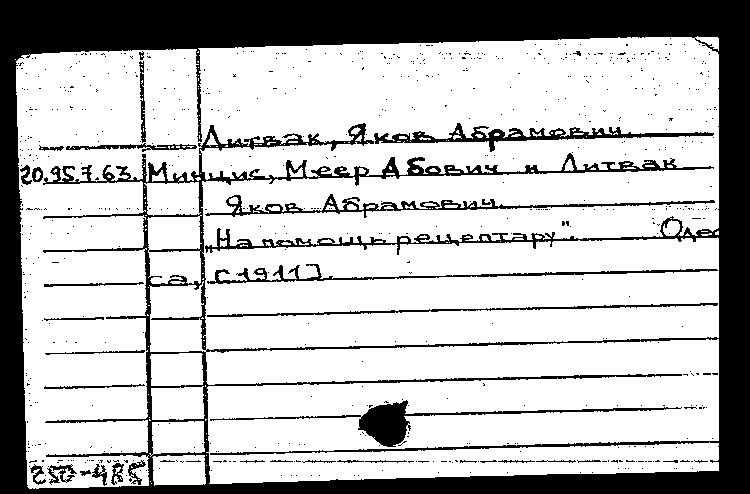 Литвак, Яков Абрамович.
20.95.7.63. Минцис, Меер Абович и Литвак
Яков Абрамович.
„На помощь рецептару“. Одес
са, [1911].
250-485